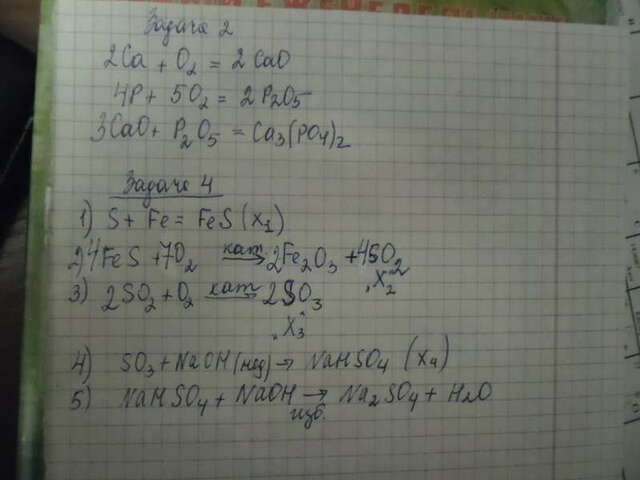 Задача 2
2Ca + O2 = 2CaO
4P + 5O2 = 2P2O5
3CaO + P2O5 = Ca3(PO4)2
Задача 4
1) S + Fe = FeS (X1)
2) 4FeS + 7O2 кат→ 2Fe2O3 + 4SO2
"X2"
3) 2SO2 + O2 кат→ 2SO3
"X3"
4) SO3 + NaOH (нед) → NaHSO4 (X4)
5) NaHSO4 + NaOH → Na2SO4 + H2O
изб.